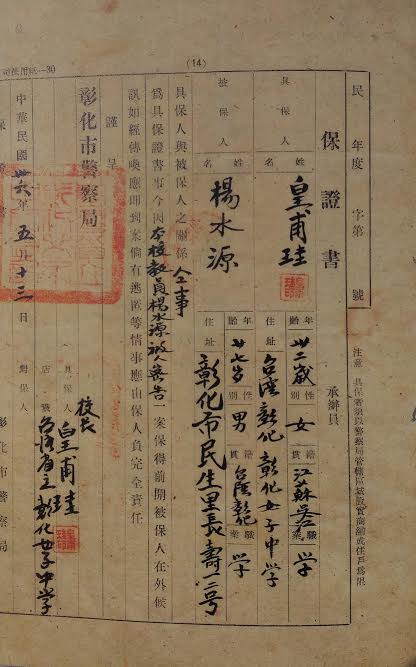 (14)
民 年度 字第 號
保證書
承辦員
注意 具保者須以警察局管轄區域殷實商舖或住戶為限
具保人 姓名 皇甫珪 年齡 卅二歲 性別 女 籍貫 江蘇吳 職業 學
住址 台灣彰化 彰化女子中學
被保人 姓名 楊水源 年齡 廿七歲 性別 男 籍貫 台灣彰化 職業 學
住址 彰化市民生里長壽一二号
具保人與被保人之關係 仝事
為具保證書事今因 本校教員楊水源被人密告 一案保得前開被保人在外候
訊如經傳喚應即到案倘有逃匿等情事應由保人負完全責任
謹呈
彰化市警察局
校長
具保人 皇甫珪
店號 台灣省立彰化女子中學
對保人
中華民國 卅六 年 五 月 十三 日
彰化市警察局